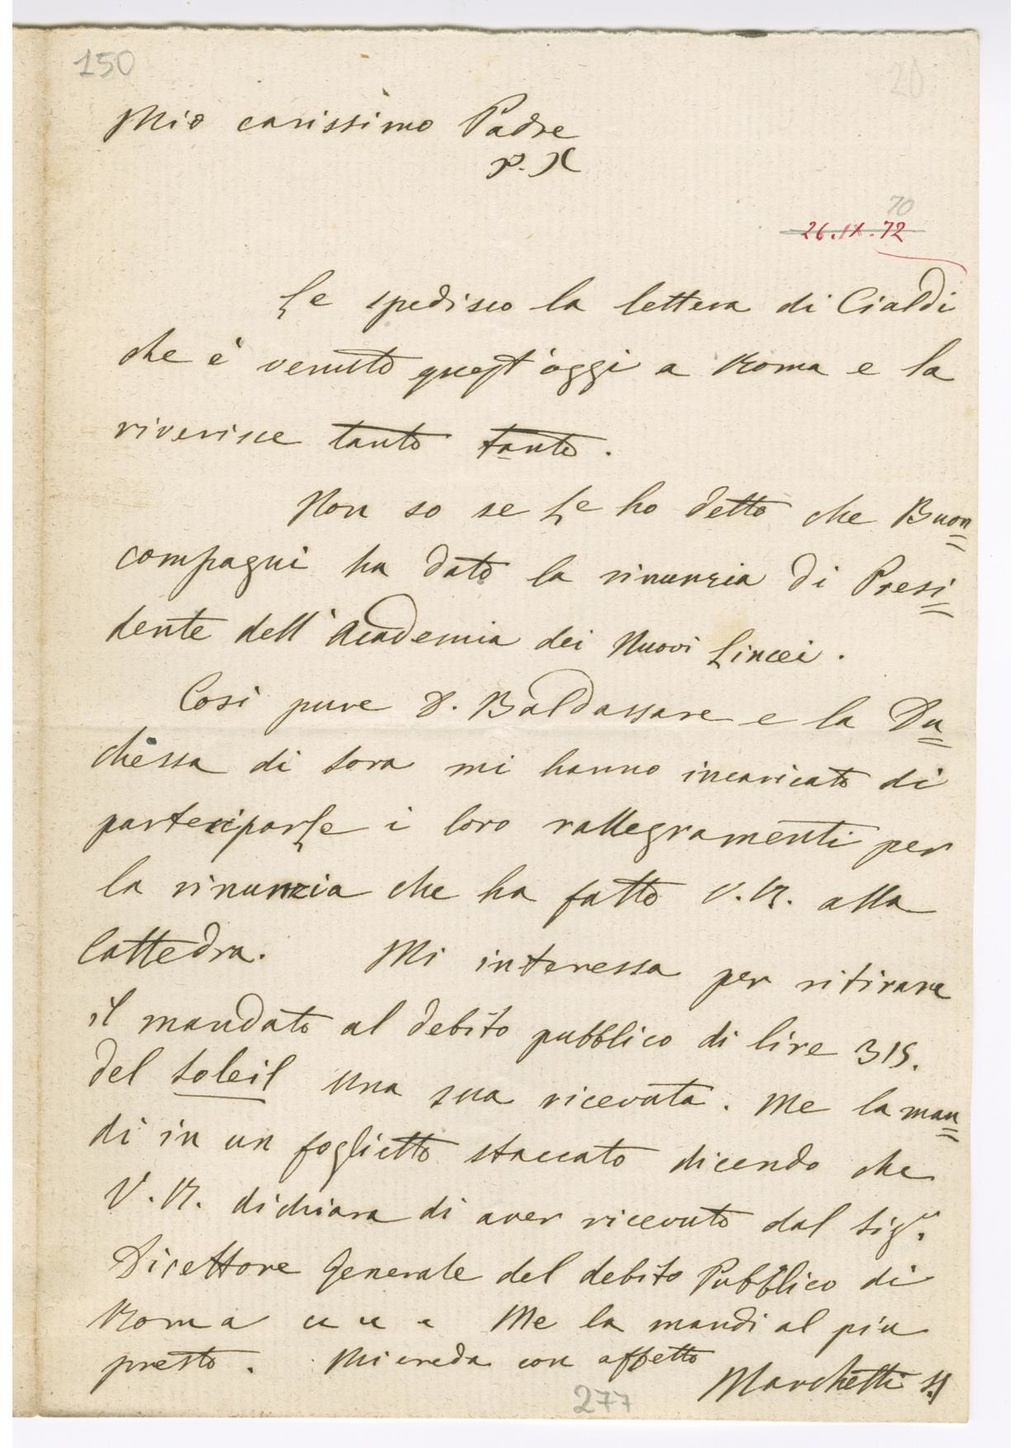 150
20
Mio carissimo Padre
P. X
70
26.IX.72
Le spedisco la lettera di Cialdi
che è venuto quest'oggi a Roma e la
riverisce tanto tanto.
Non so se Le ho detto che Buon=
compagni ha dato la rinunzia di Presi=
dente dell'Academia dei Nuovi Lincei.
Così pure D. Baldassare e la Du=
chessa di Sora mi hanno incaricato di
parteciparLe i loro rallegramenti per
la rinunzia che ha fatto V. R. alla
Cattedra. Mi interessa per ritirare
il mandato al debito pubblico di lire 315.
del Soleil una sua ricevuta. Me la man=
di in un foglietto staccato dicendo che
V. R. dichiara di aver ricevuto dal Sigr.
Direttore Generale del debito Pubblico di
Roma Me la mandi al più
presto. Mi creda con affetto
Marchetti
277